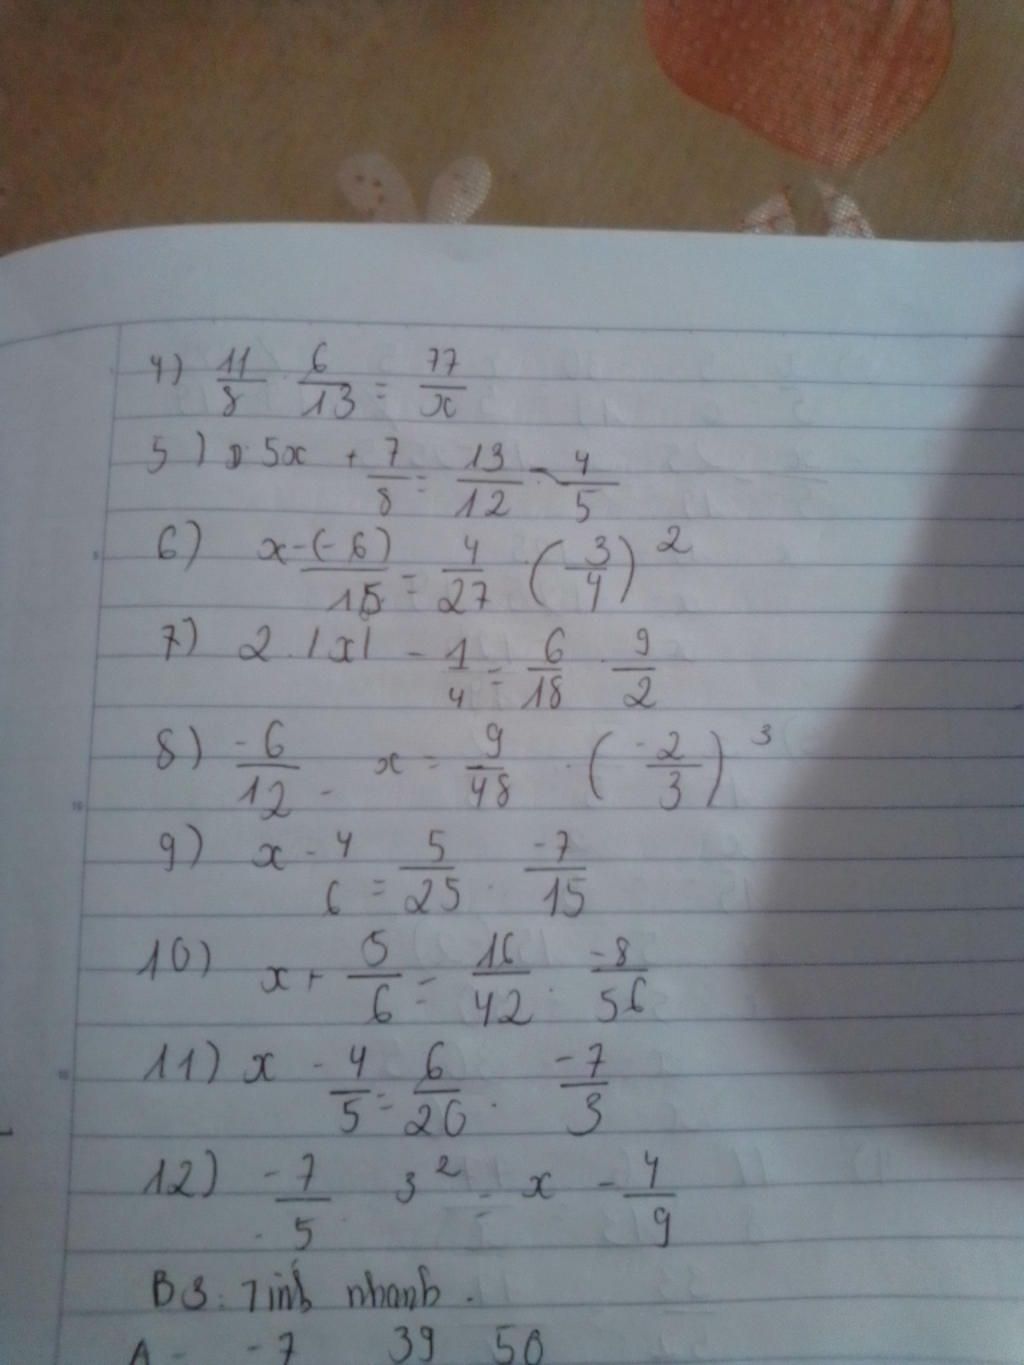 4) 11/8 . 6/13 = 77/x
5) 5x + 7/8 = 13/12 - 4/5
6) x - (-6)/15 = 4/27 . (-3/4)²
7) 2 . |x| - 1/4 = 6/18 . 9/2
8) -6/12 - x = 9/48 . (-2/3)³
9) x - 4/6 = 5/25 . -7/15
10) x + 5/6 = 16/42 . -8/56
11) x - 4/5 = 6/20 . -7/3
12) -7/5 . 3² = x - 4/9
B3: Tính nhanh.
A = -7 39 50